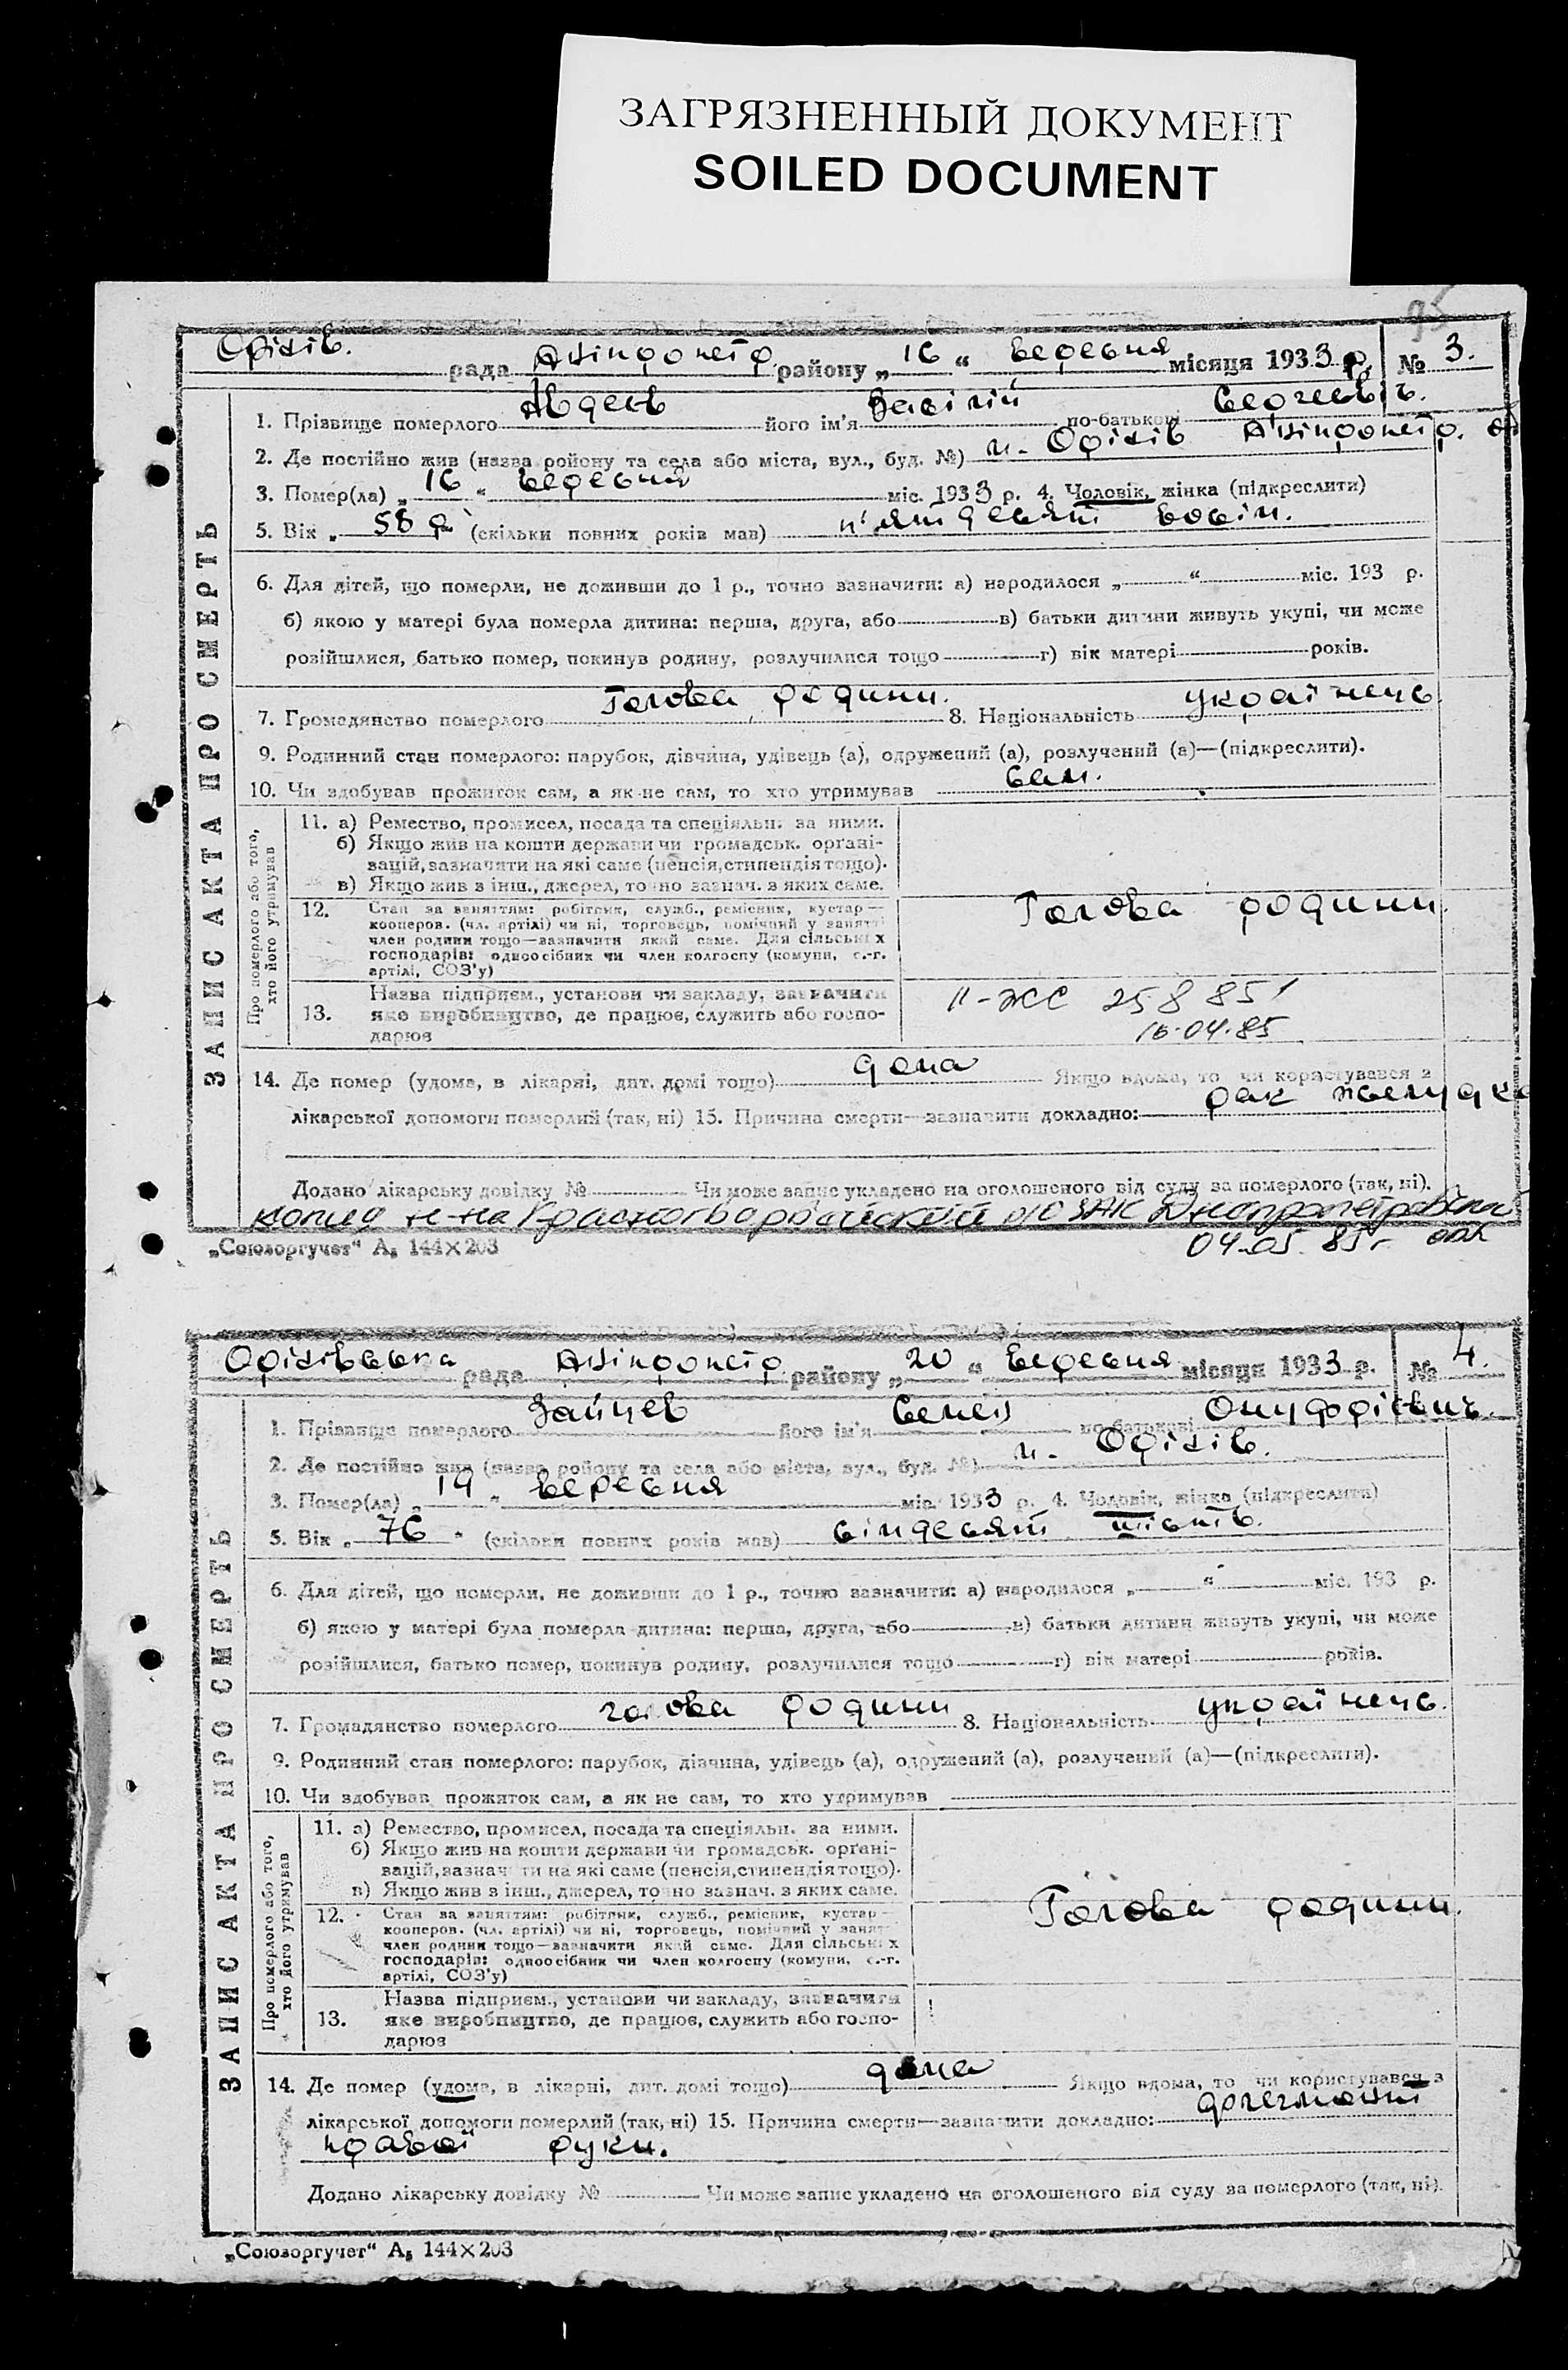 ЗАГРЯЗНЕННЫЙ ДОКУМЕНТ
SOILED DOCUMENT
95
ЗАПИС АКТА ПРО СМЕРТЬ
Оріхів. рада району „16“ вересня місяця 1933 р. № 3.
1. Прізвище померлого Авдеев його ім'я Василій по-батькові Сергеевіч.
2. Де постійно жив (назва ройону та села або міста, вул., буд. №) м. Оріхів
3. Помер(ла) „16“ вересня міс. 1933 р. 4. Чоловік, жінка (підкреслити)
5. Вік „58 р. (скільки повних років мав) п'ятдесят восім.
6. Для дітей, що померли, не доживши до 1 р., точно зазначити: а) народилося „ “ міс. 193 р.
б) якою у матері була померла дитина: перша, друга, або в) батьки дитини живуть укупі, чи може
розійшлися, батько помер, покинув родину, розлучилися тощо г) вік матері років.
7. Громадянство померлого Голова родини. 8. Національність українець.
9. Родинний стан померлого: парубок, дівчина, удівець (а), одружений (а), розлучений (а)—(підкреслити).
10. Чи здобував прожиток сам, а як не сам, то хто утримував сам.
Про померлого або того, хто його утримував
11. а) Ремество, промисел, посада та спеціяльн. за ними.
б) Якщо жив на кошти держави чи громадськ. органі-
зацій, зазначити на які саме (пенсія, стипендія тощо).
в) Якщо жив з інш., джерел, точно зазнач. з яких саме.
12. Стан за заняттям: робітник, служб., ремісник, кустар—
кооперов. (чл. артілі) чи ні, торговець, помічний у занятті
член родини тощо—зазначити який саме. Для сільських
господарів: одноосібник чи член колгоспу (комуни, с.-г.
артілі, СОЗ'у)
Голова родини.
13. Назва підприєм., установи чи закладу, зазначити
яке виробництво, де працює, служить або госпо-
дарює
II-ЖС 258851
16.04.85
14. Де помер (удома, в лікарні, дит. домі тощо) дома Якщо вдома, то чи користувався з
лікарської допомоги померлий (так, ні) 15. Причина смерти—зазначити докладно: рак желудка
Додано лікарську довідку № Чи може запис укладено на оголошеного від суду за померлого (так, ні).
копия н-на Красногвардейский о/ЗАГС Днепропетровской
04.05.85г.
„Союзоргучет“ А5 144×203
ЗАПИС АКТА ПРО СМЕРТЬ
рада району „20“ вересня місяця 1933 р. № 4.
1. Прізвище померлого Зайцев його ім'я Семен по-батькові Онуфрієвич.
2. Де постійно жив (назва ройону та села або міста, вул., буд. №) м. Оріхів.
3. Помер(ла) „19“ вересня міс. 1933 р. 4. Чоловік, жінка (підкреслити)
5. Вік „76“ (скільки повних років мав) сімдесят шість.
6. Для дітей, що померли, не доживши до 1 р., точно зазначити: а) народилося „ “ міс. 193 р.
б) якою у матері була померла дитина: перша, друга, або в) батьки дитини живуть укупі, чи може
розійшлися, батько помер, покинув родину, розлучилися тощо г) вік матері років.
7. Громадянство померлого голова родини 8. Національність українець.
9. Родинний стан померлого: парубок, дівчина, удівець (а), одружений (а), розлучений (а)—(підкреслити).
10. Чи здобував прожиток сам, а як не сам, то хто утримував
Про померлого або того, хто його утримував
11. а) Ремество, промисел, посада та спеціяльн. за ними.
б) Якщо жив на кошти держави чи громадськ. органі-
зацій, зазначити на які саме (пенсія, стипендія тощо).
в) Якщо жив з інш., джерел, точно зазнач. з яких саме.
12. Стан за заняттям: робітник, служб., ремісник, кустар—
кооперов. (чл. артілі) чи ні, торговець, помічний у занятті
член родини тощо—зазначити який саме. Для сільських
господарів: одноосібник чи член колгоспу (комуни, с.-г.
артілі, СОЗ'у)
Голова родини.
13. Назва підприєм., установи чи закладу, зазначити
яке виробництво, де працює, служить або госпо-
дарює
14. Де помер (удома, в лікарні, дит. домі тощо) дома Якщо вдома, то чи користувався з
лікарської допомоги померлий (так, ні) 15. Причина смерти—зазначити докладно:
правої руки.
Додано лікарську довідку № Чи може запис укладено на оголошеного від суду за померлого (так, ні).
„Союзоргучет“ А5 144×203